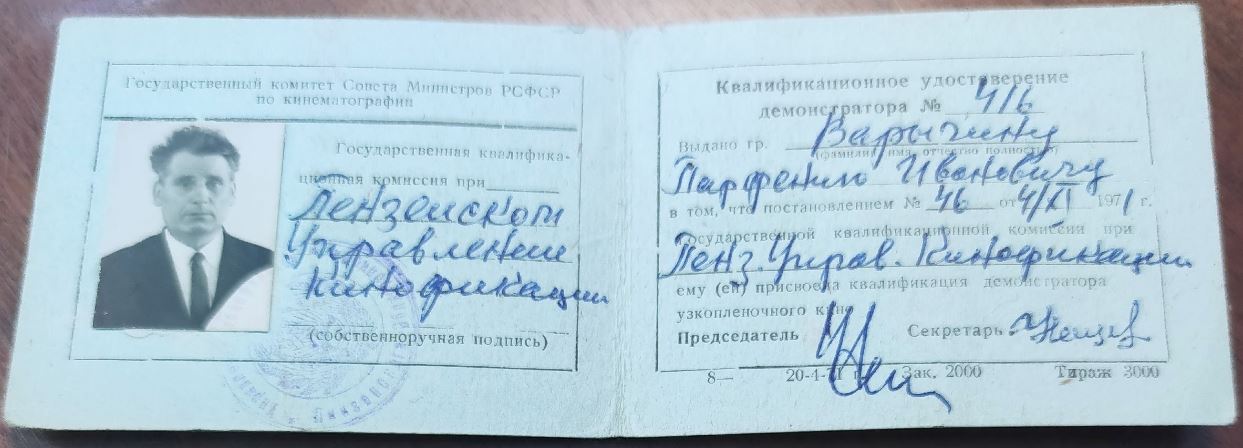 Государственный комитет Совета Министров РСФСР
по кинематографии
Государственная квалифика-
ционная комиссия при
Пензенском
Управлении
кинофикации
(собственноручная подпись)
Квалификационное удостоверение
демонстратора № 416
Выдано гр. Варычину
(фамилия, имя, отчество полностью)
Парфению Ивановичу
в том, что постановлением № 46 от 4/XI 1971 г.
Государственной квалификационной комиссии при
Пенз. Управ. Кинофикации
ему (ей) присвоена квалификация демонстратора
узкопленочного кино
Председатель Секретарь
8— 20-4-71 г. Зак. 2000 Тираж 3000